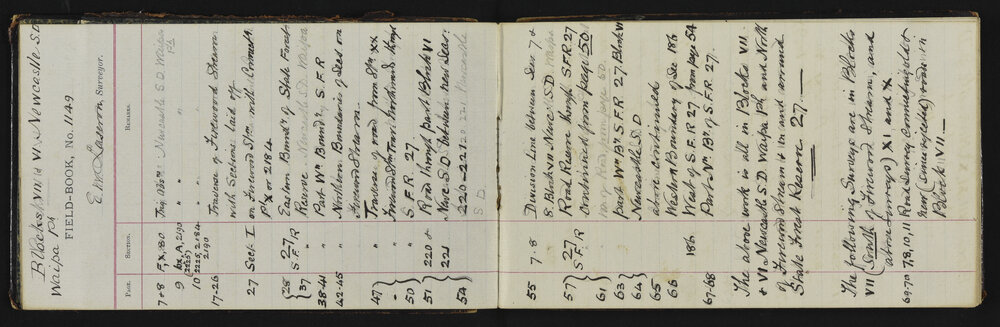 Blocks VII & VI Newcastle S.D
Waipa Pt
FIELD-BOOK, No. 1149
E. M. Lawson, Surveyor.
PAGE. SECTION. REMARKS.
7 & 8 F, X, 80 Trig. Newcastle S.D. Waipa
9 bx, A, 219 " "
10 2226, 2184 2190 " "
17-26 Traverse of Firewood Stream
with Sections laid off
27 Sect. I on Firewood Stm with Connectn
Pt X or 2184
28 27 Eastern Boundy of State Forest
37 S.F.R Reserve Newcastle S.D. Waipa
38-41 Part Wn Boundy S.F.R
42-45 Northern Boundaries of Secs on
Firewood Stream
47 " Traverse of road from Stn XX
" " Firewood Stm Trav. Northward through
50 " S.F.R 27
51 220 & Road through part Block VI
221 Newc. S.D. Between new Secs.
54 220-221
S.D
55 7-8 Division Line between Sec. 7 &
8 Block VII Newc. S.D.
57 27 Road Reserve through S.F.R. 27
S.F.R Continued from page 50
61
63 part Wn By S.F.R. 27 Block VI
64 Newcastle S.D
65 above continued
66 Western Boundary of Sec 186
186 West of S.F.R 27 from page 54
67-68 Part Nn By of S.F.R. 27.
The above work is all in Blocks VII
& VI Newcastle S.D Waipa Pt and North
of Firewood Stream & in and around
State Forest Reserve 27.
The following Surveys are in Blocks
VII (South of Firewood Stream, and
above surveys) XI and X
69, 70 7, 8, 10, 11 Road Survey connecting old &
new road in
Block VII.